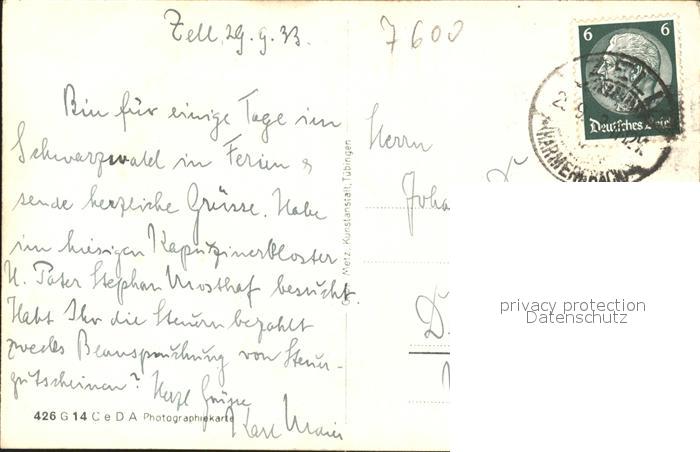 Zell, 29.9.33.
7600
Bin für einige Tage im
Schwarzwald in Ferien &
sende herzliche Grüsse. Habe
im hiesigen Kapuzinerkloster
H. Pater Stephan Mosthaf besucht.
Habt Ihr die Steuern bezahlt
zwecks Beanspruchung von Steuer-
gutscheinen? Herzl Grüsse
Karl Maier
426 G 14 C e D A Photographiekarte
Metz, Kunstanstalt, Tübingen
6 6
Deutsches Reich
ZELL
HARMERSBACH
Herrn
Joha
D.
privacy protection
Datenschutz